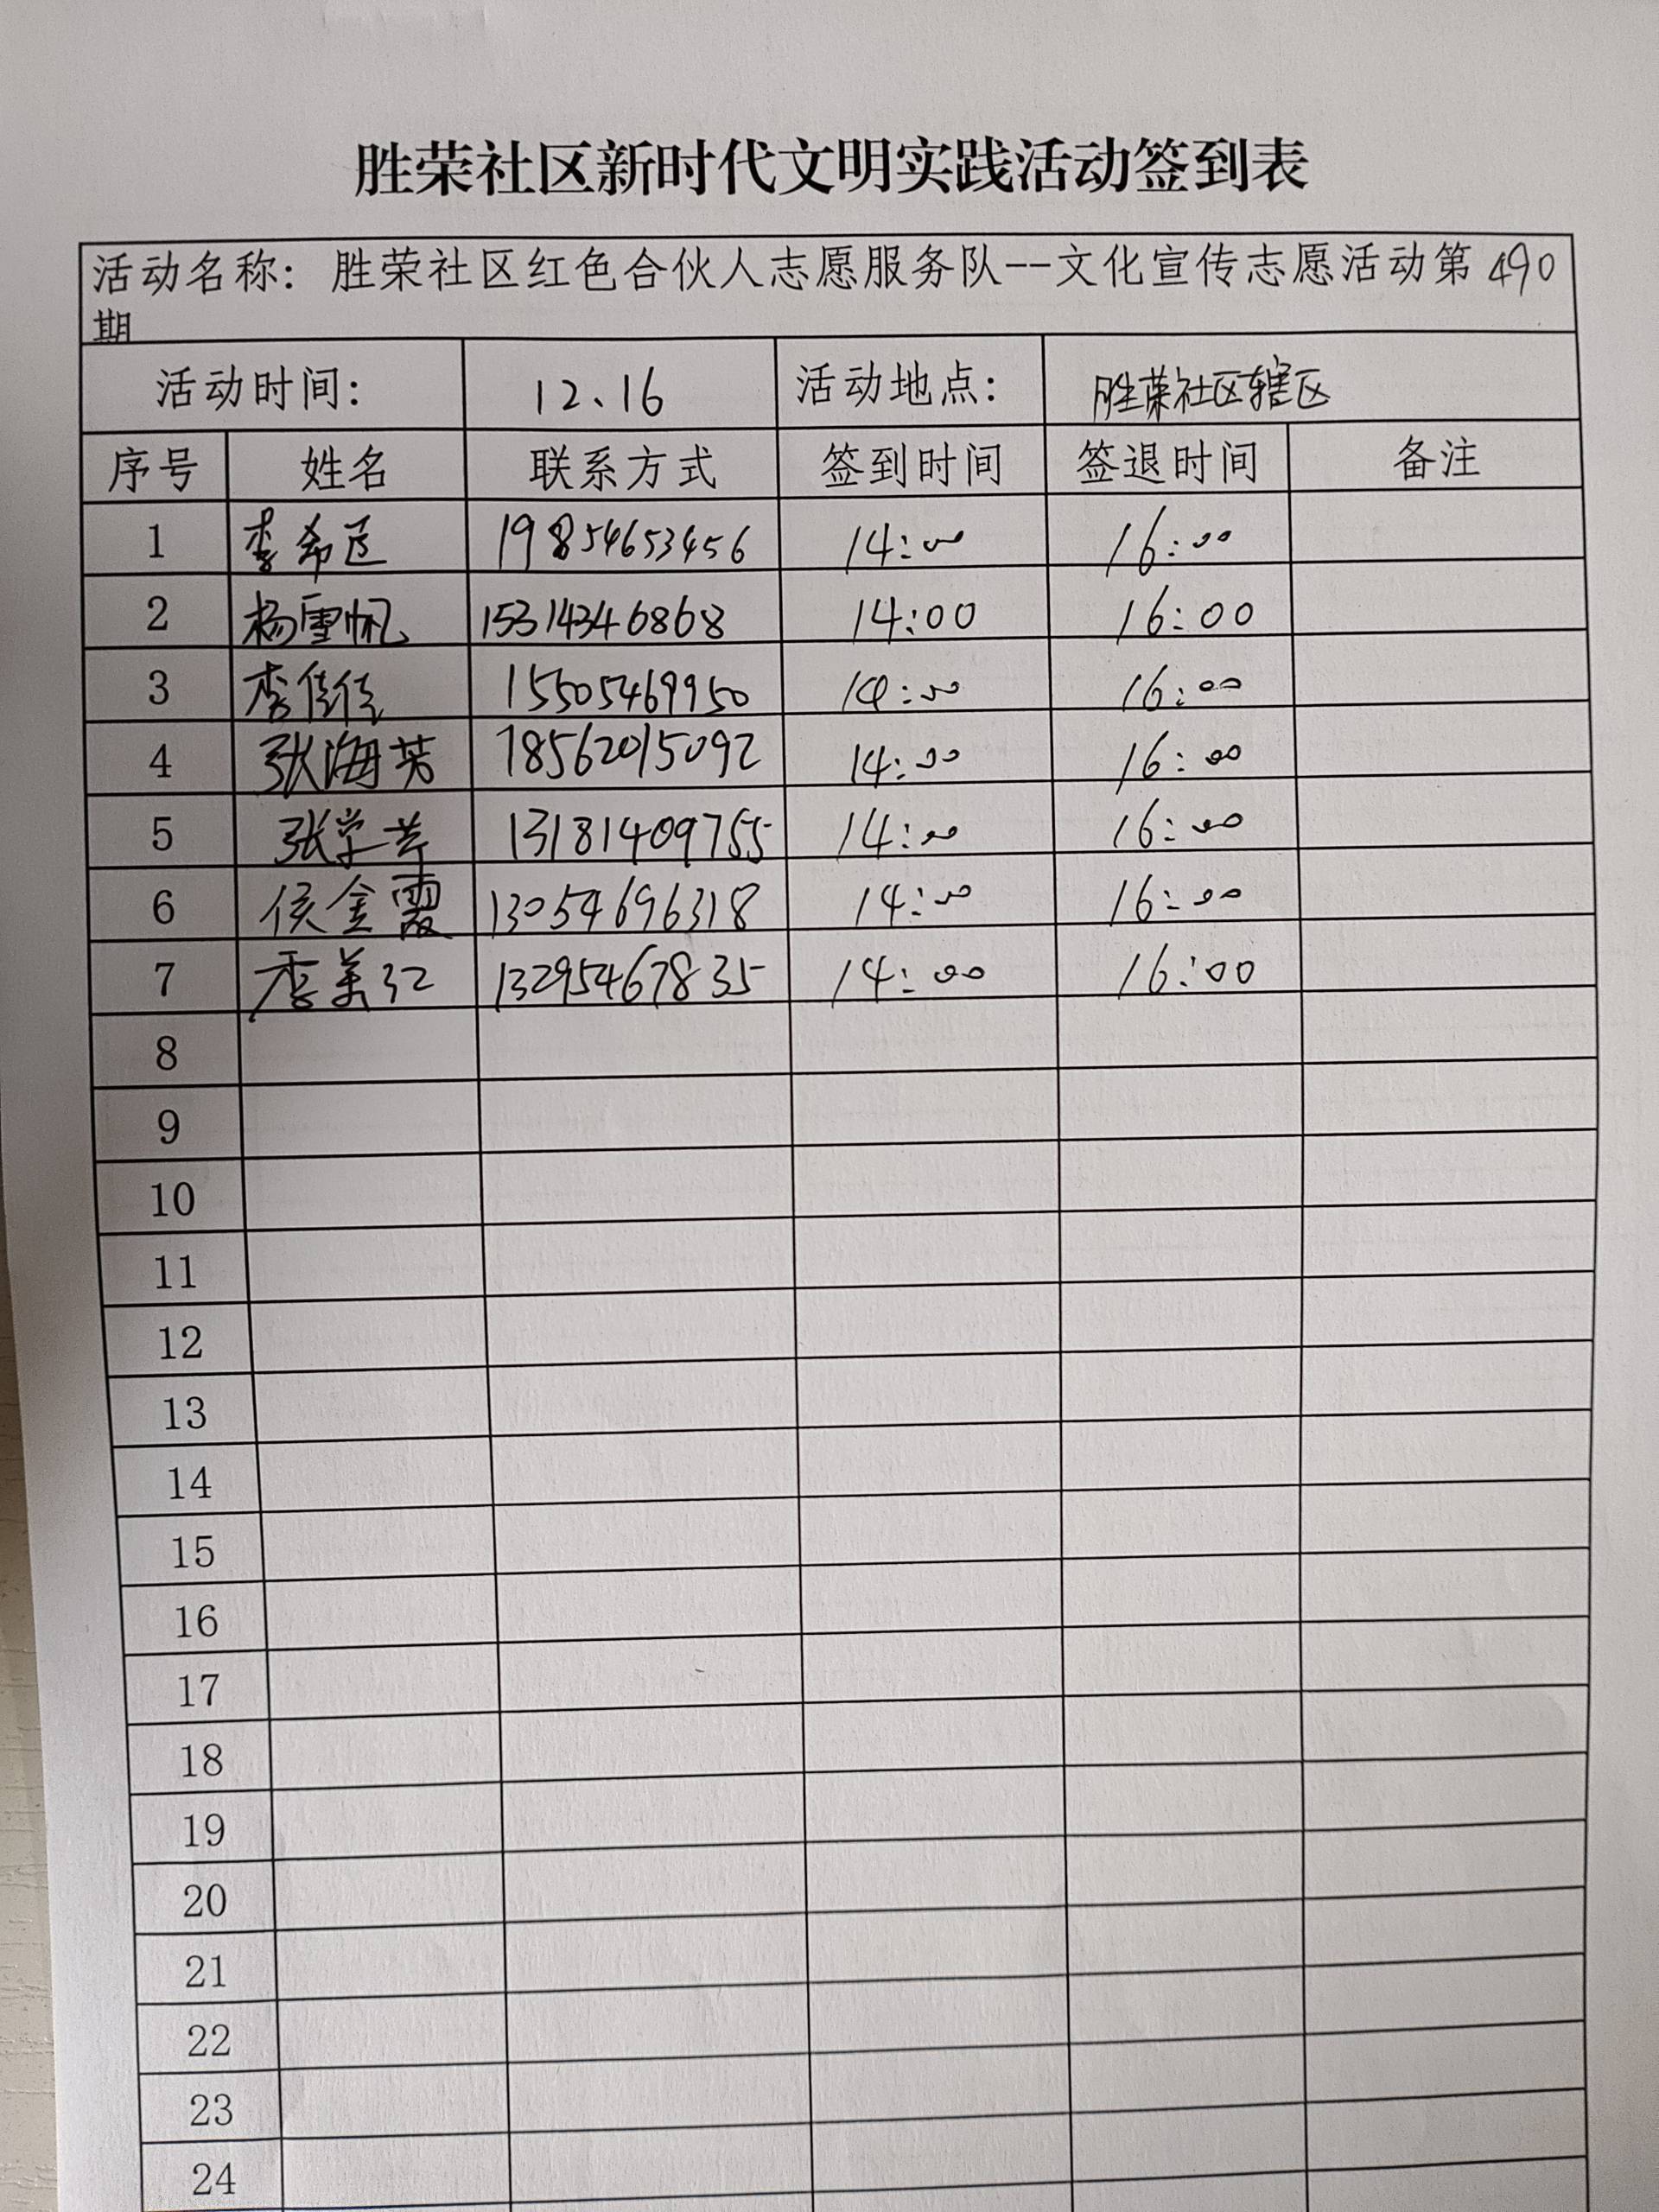 胜荣社区新时代文明实践活动签到表
活动名称：胜荣社区红色合伙人志愿服务队--文化宣传志愿活动第490
期
活动时间： 12、16 活动地点： 胜荣社区辖区
序号 姓名 联系方式 签到时间 签退时间 备注
1 李希 19854653456 14:00 16:00
2 杨雪帆 15314346868 14:00 16:00
3 李佳佳 15505469950 14:00 16:00
4 张海英 18562015092 14:00 16:00
5 张学芹 13181409755 14:00 16:00
6 侯金霞 13054696318 14:00 16:00
7 季美红 13295467835 14:00 16:00
8
9
10
11
12
13
14
15
16
17
18
19
20
21
22
23
24